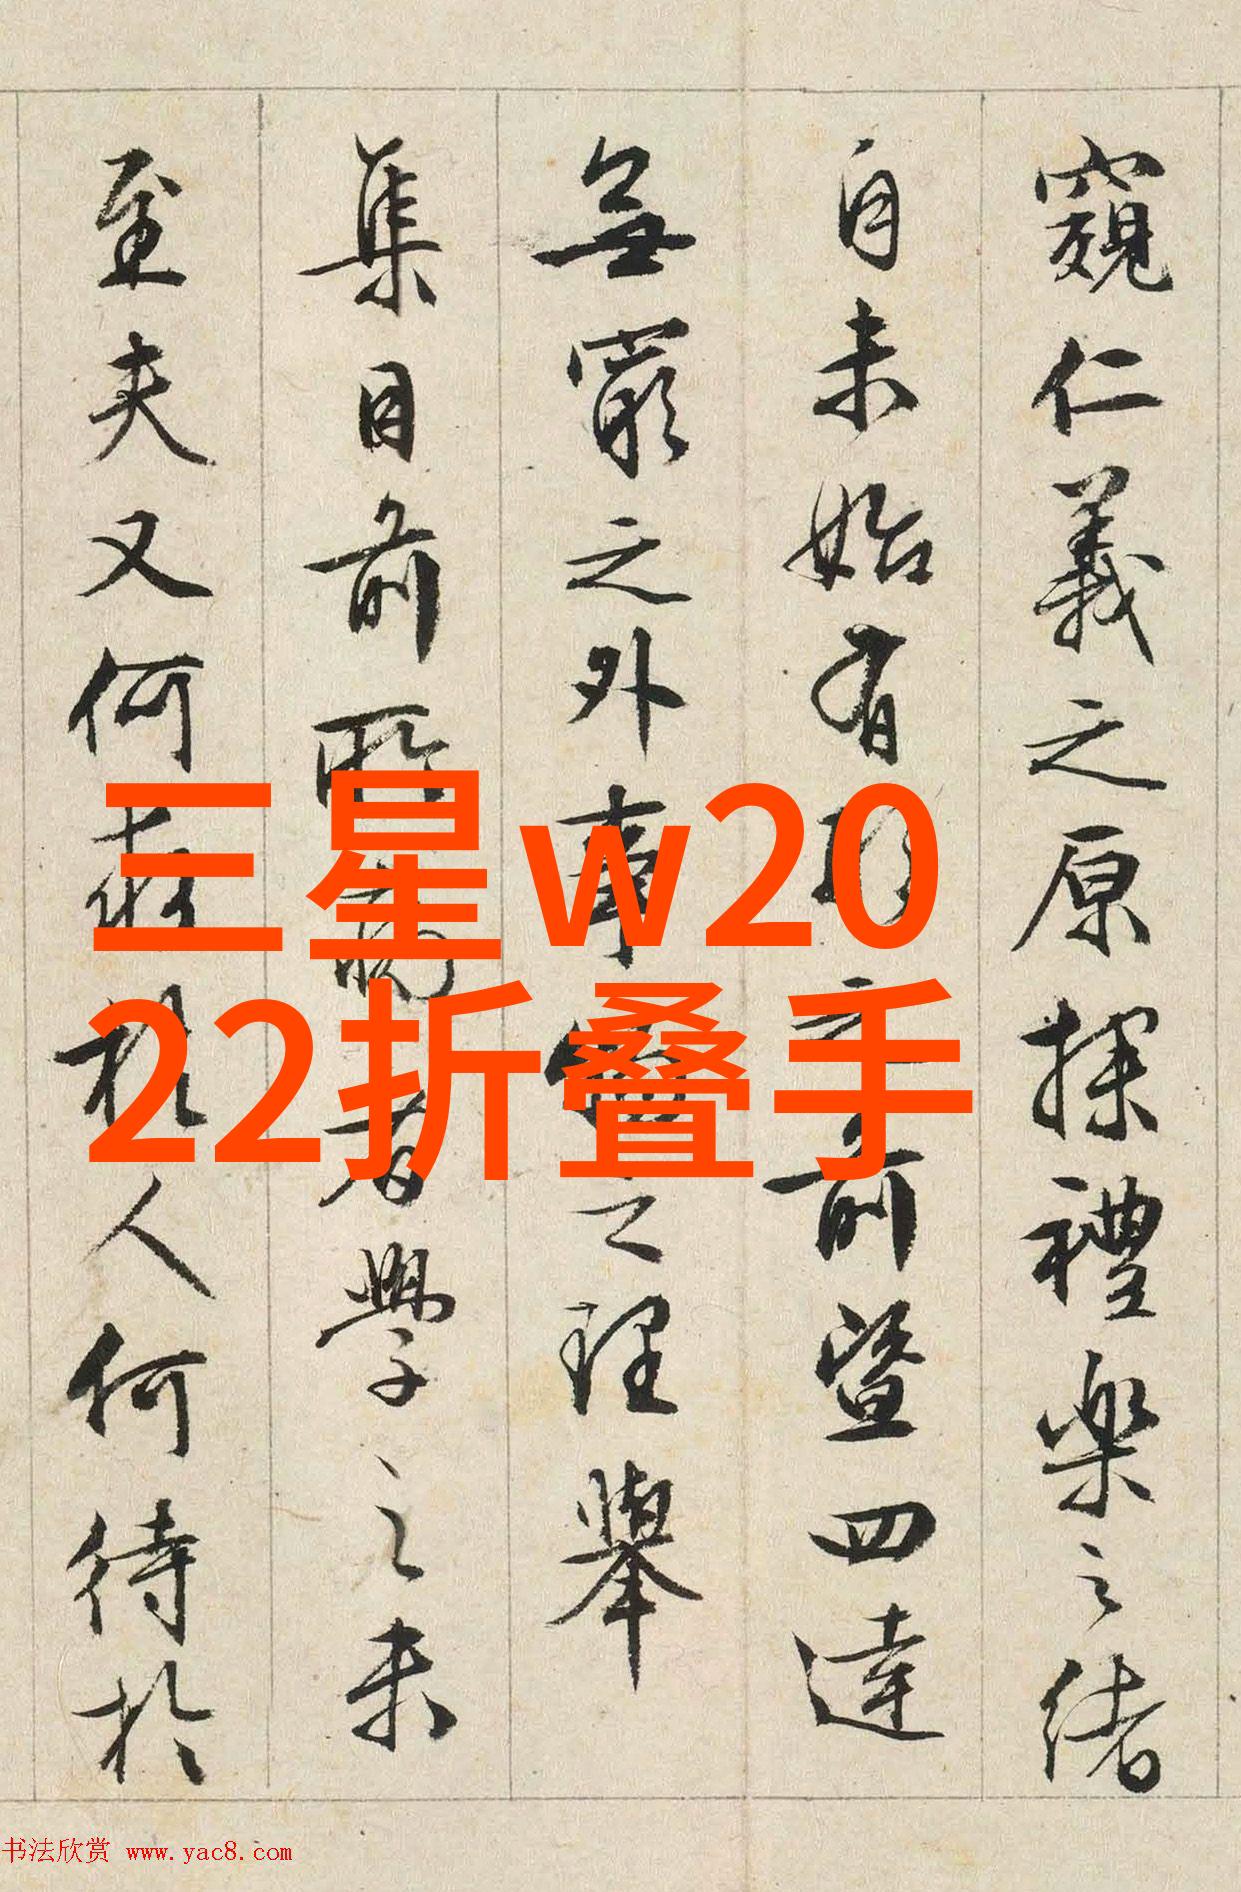 窺仁義之原探禮樂之緒
自未始有形之前暨四達
無窮之外事物之理舉
集目前所病者學之未
至夫又何求於人何待於
三星w20
22折叠手
书法欣赏 www.yac8.com